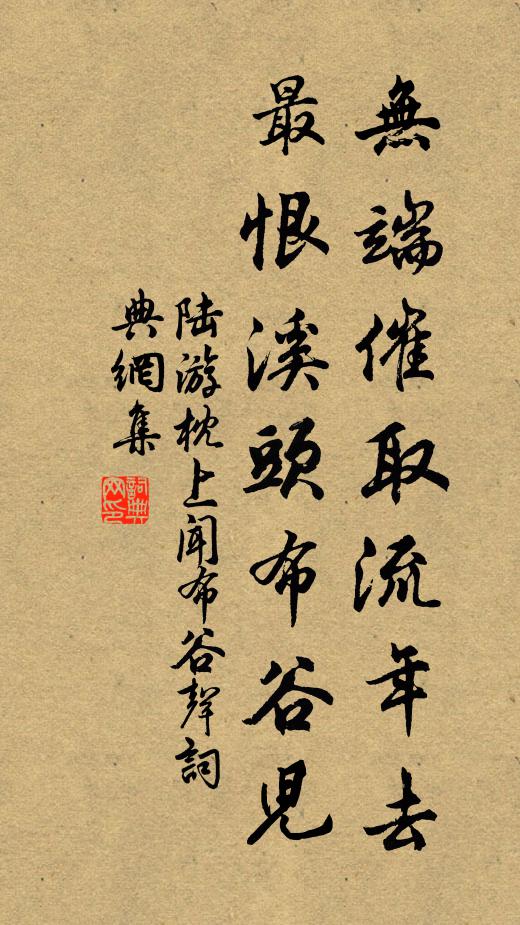 無端催取流年去
最恨溪頭布谷児
陆游枕上闻布谷聲詞
典網集
詞典网印